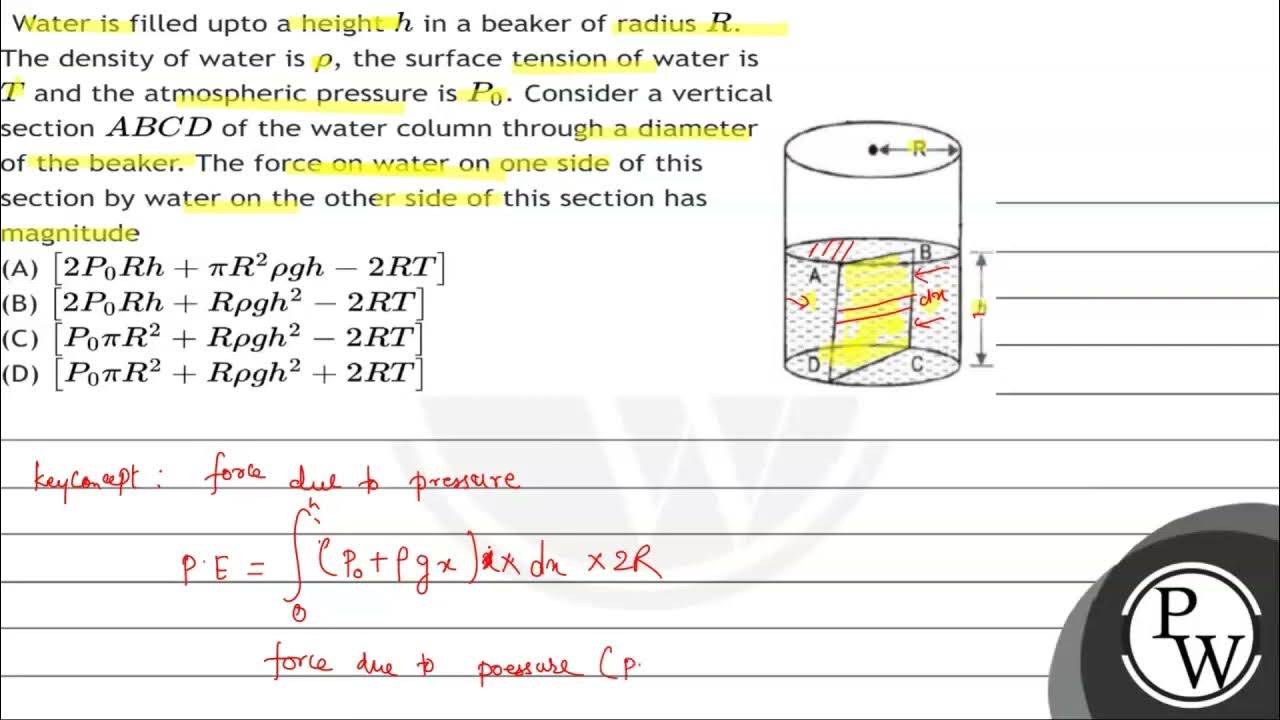 Water is filled upto a height h in a beaker of radius R.
The density of water is ρ, the surface tension of water is
T and the atmospheric pressure is P₀. Consider a vertical
section ABCD of the water column through a diameter
of the beaker. The force on water on one side of this
section by water on the other side of this section has
magnitude
(A) [2P₀Rh + πR²ρgh − 2RT]
(B) [2P₀Rh + Rρgh² − 2RT]
(C) [P₀πR² + Rρgh² − 2RT]
(D) [P₀πR² + Rρgh² + 2RT]
R
A B
dx
h
D C
Keyconcept : force due to pressure
P.E = ∫₀ʰ (P₀ + ρgx) x dx × 2R
force due to poessure (p.
P
W